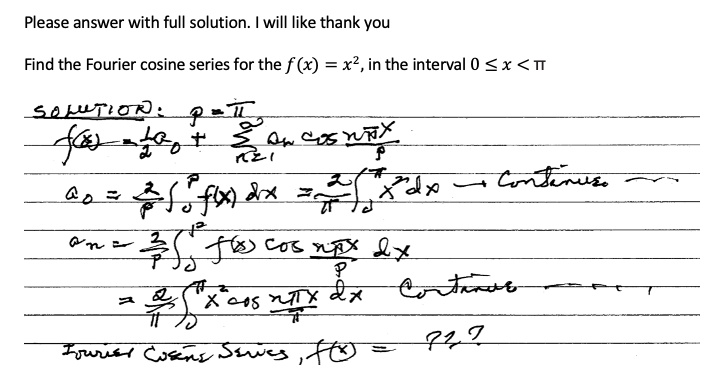 Please answer with full solution. I will like thank you
Find the Fourier cosine series for the f(x) = x², in the interval 0 ≤ x < π
SOLUTION: p = π
f(x) = ½a₀ + ∑ₙ₌₁^∞ aₙ cos nπx/p
a₀ = 2/p ∫₀^p f(x) dx = 2/π ∫₀^π x² dx → Continues
aₙ = 2/p ∫₀^p f(x) cos nπx/p dx
= 2/π ∫₀^π x² cos nπx/π dx Continue
Fourier Cosine Series, f(x) = ???